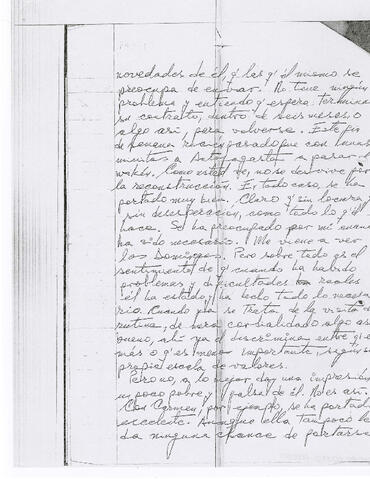 novedades de él, q' las q' él mismo se
preocupa de enviar. No tiene ningún
problema y entiendo q' espera terminar
su contrato, dentro de seis meses o
algo así, para volverse. Este fin
de semana
a Antofagasta a pasar el
weken. Como usted ve, no se desvive por
la reconstrucción. En todo caso, se ha
portado muy bien. Claro q' sin locura y
sin desesperación, como todo lo q' él
hace. Se ha preocupado por mí cuando
ha sido necesario. Me viene a ver
los Domingos. Pero sobre todo es el
sentimiento de q' cuando ha habido
problemas y dificultades reales
él ha estado, y ha hecho todo lo necesa
rio. Cuando ya se trata de la visita de
rutina, de
bueno, ahí ya él discrimina entre q' es
más o q' es menos importante, según su
propia escala de valores.
Pero no, a lo mejor doy una impresión
un poco pobre y falsa de él. No es así.
Con Carmen, por ejemplo, se ha portado
excelente. Aunque ella tampoco le
da ninguna chance de portarse